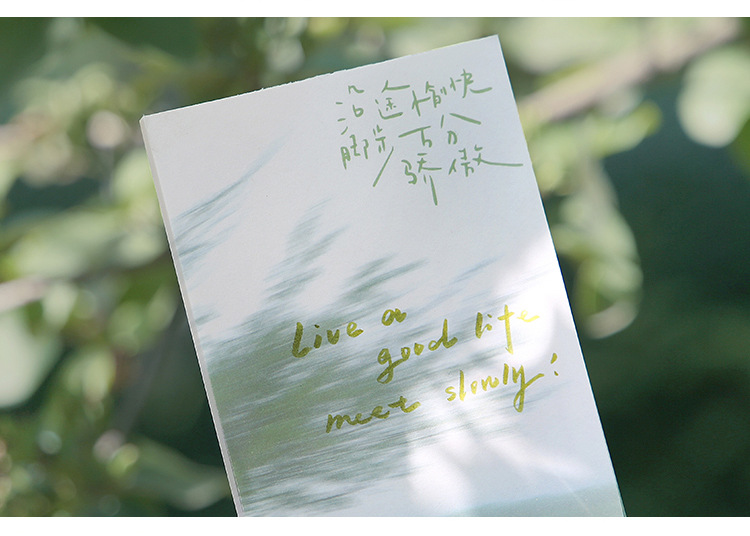 沿途愉快
脚踩万分
骄傲
Live a
good life
meet slowly!